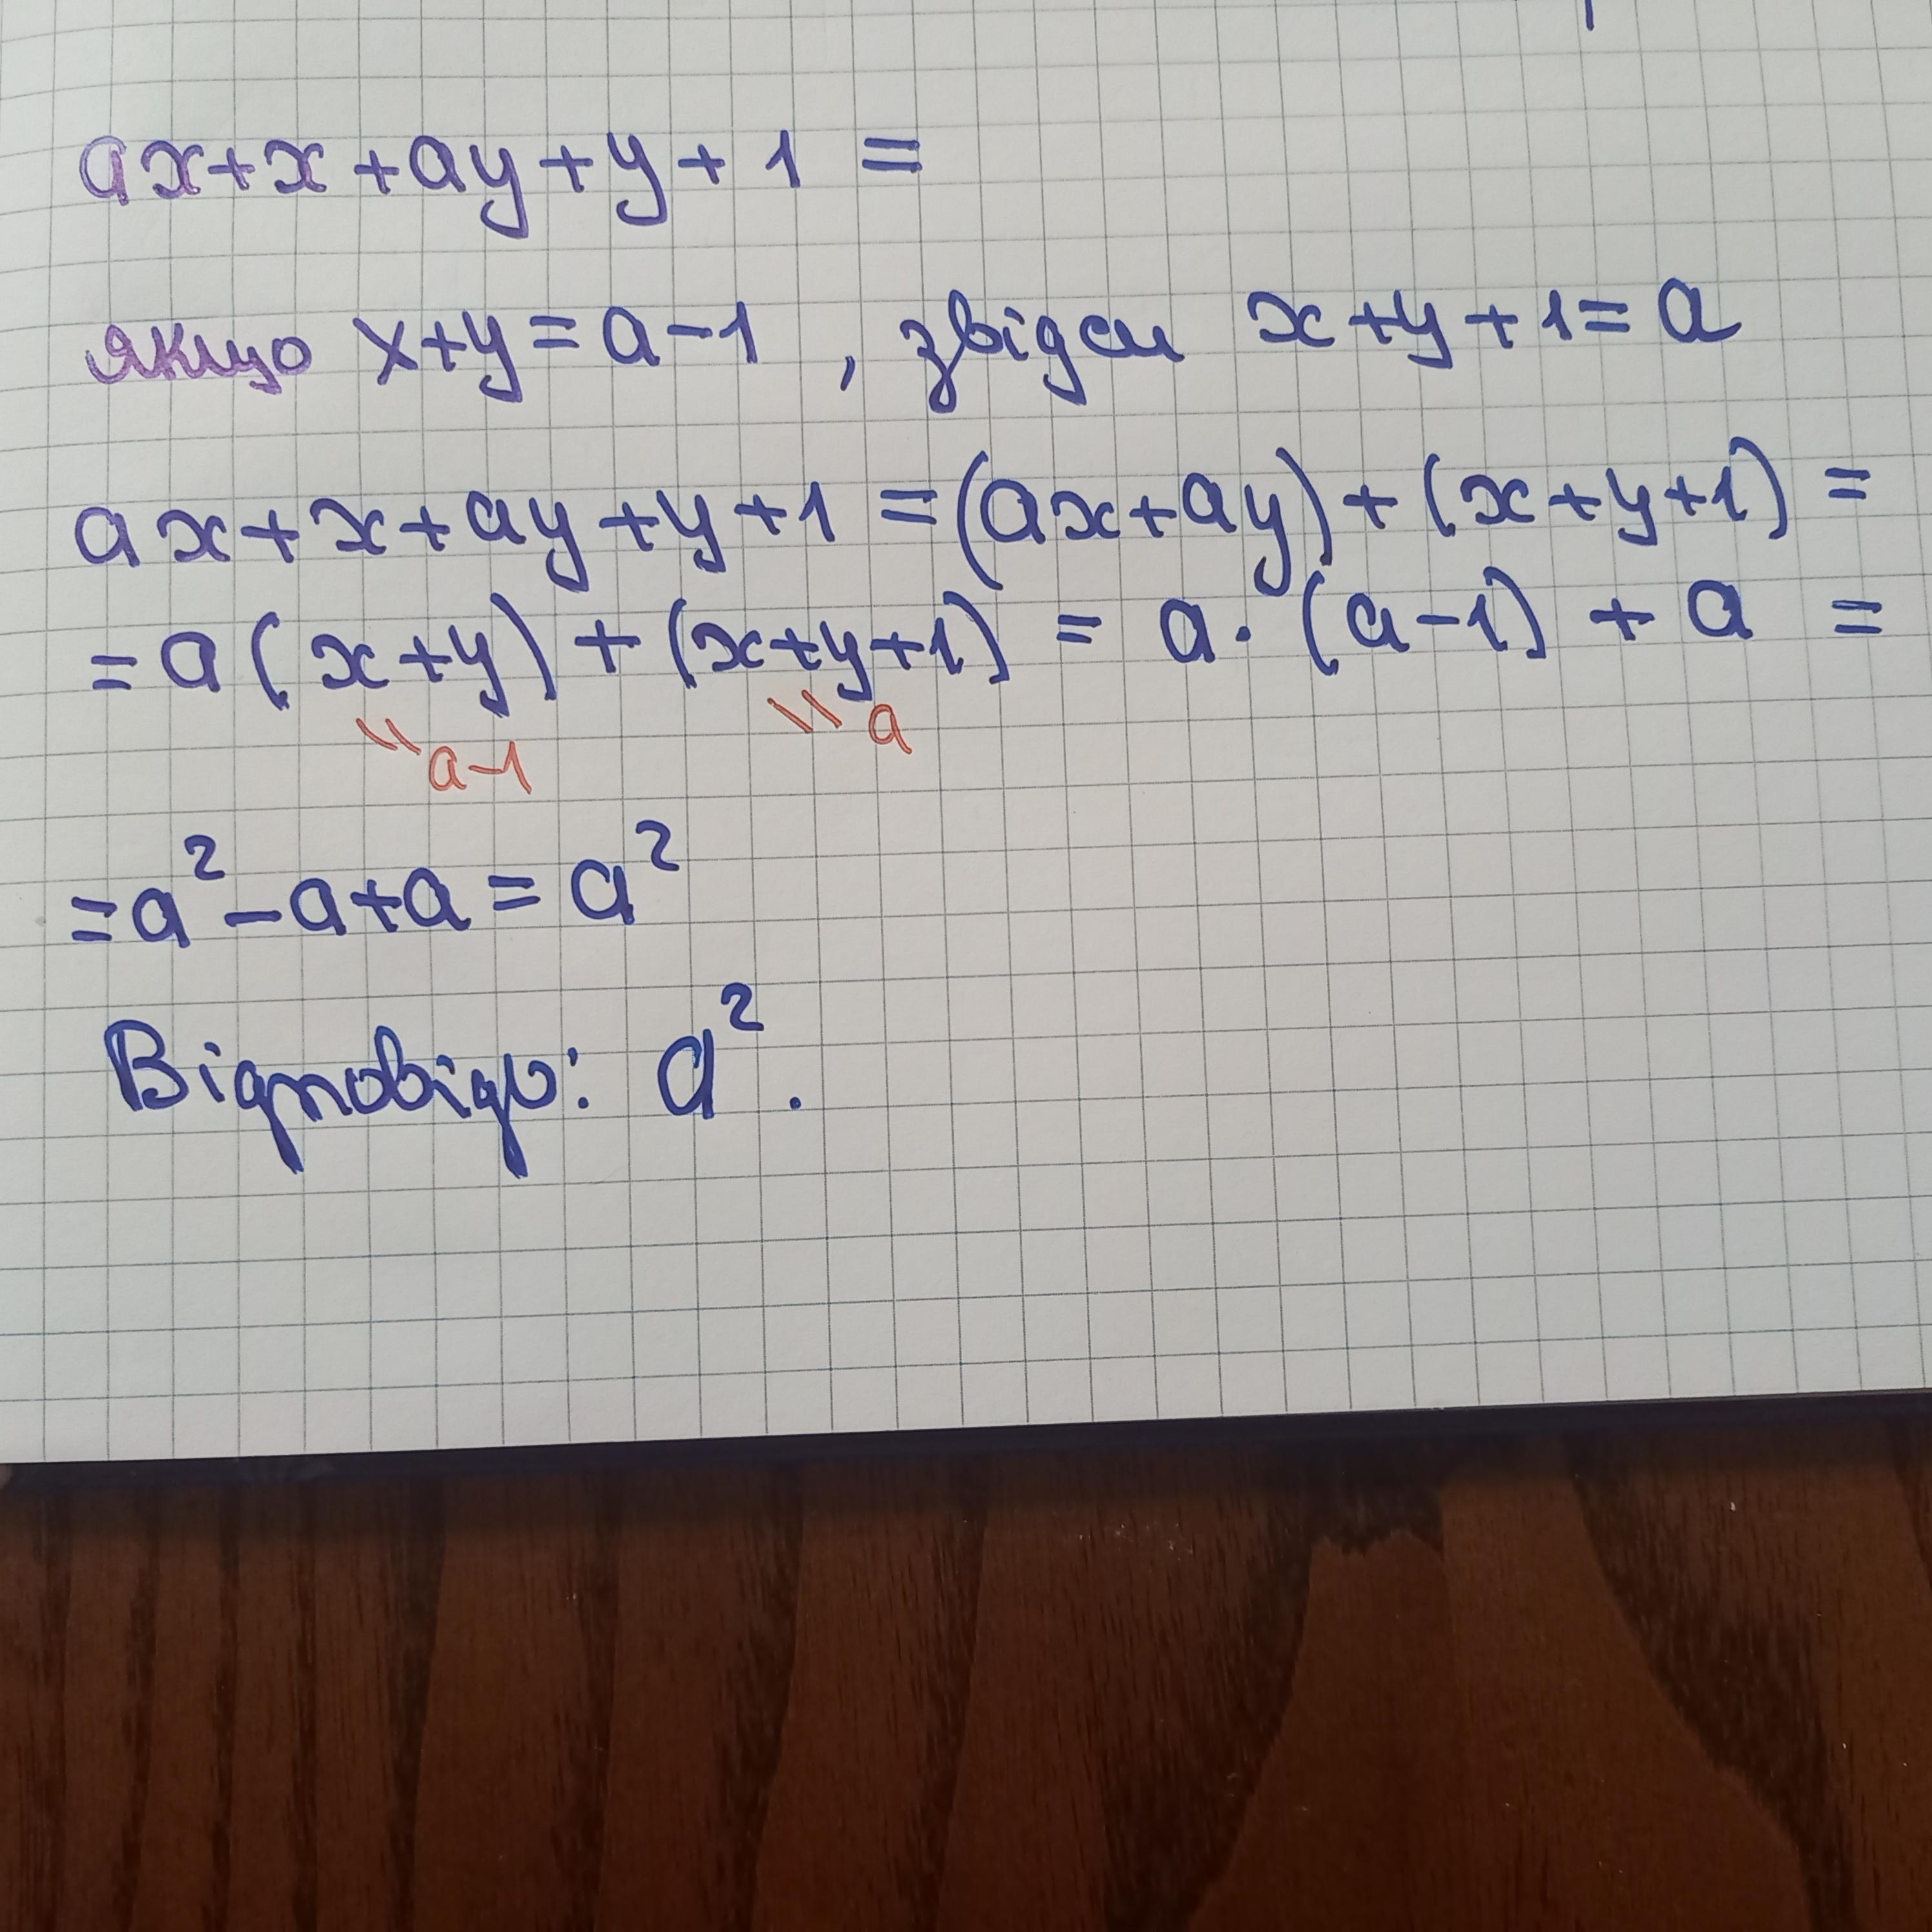 ax+x+ay+y+1=
якщо x+y=a-1, звідси x+y+1=a
ax+x+ay+y+1=(ax+ay)+(x+y+1)=
=a(x+y)+(x+y+1)=a·(a-1)+a=
=a-1 =a
=a²-a+a=a²
Відповідь: a².